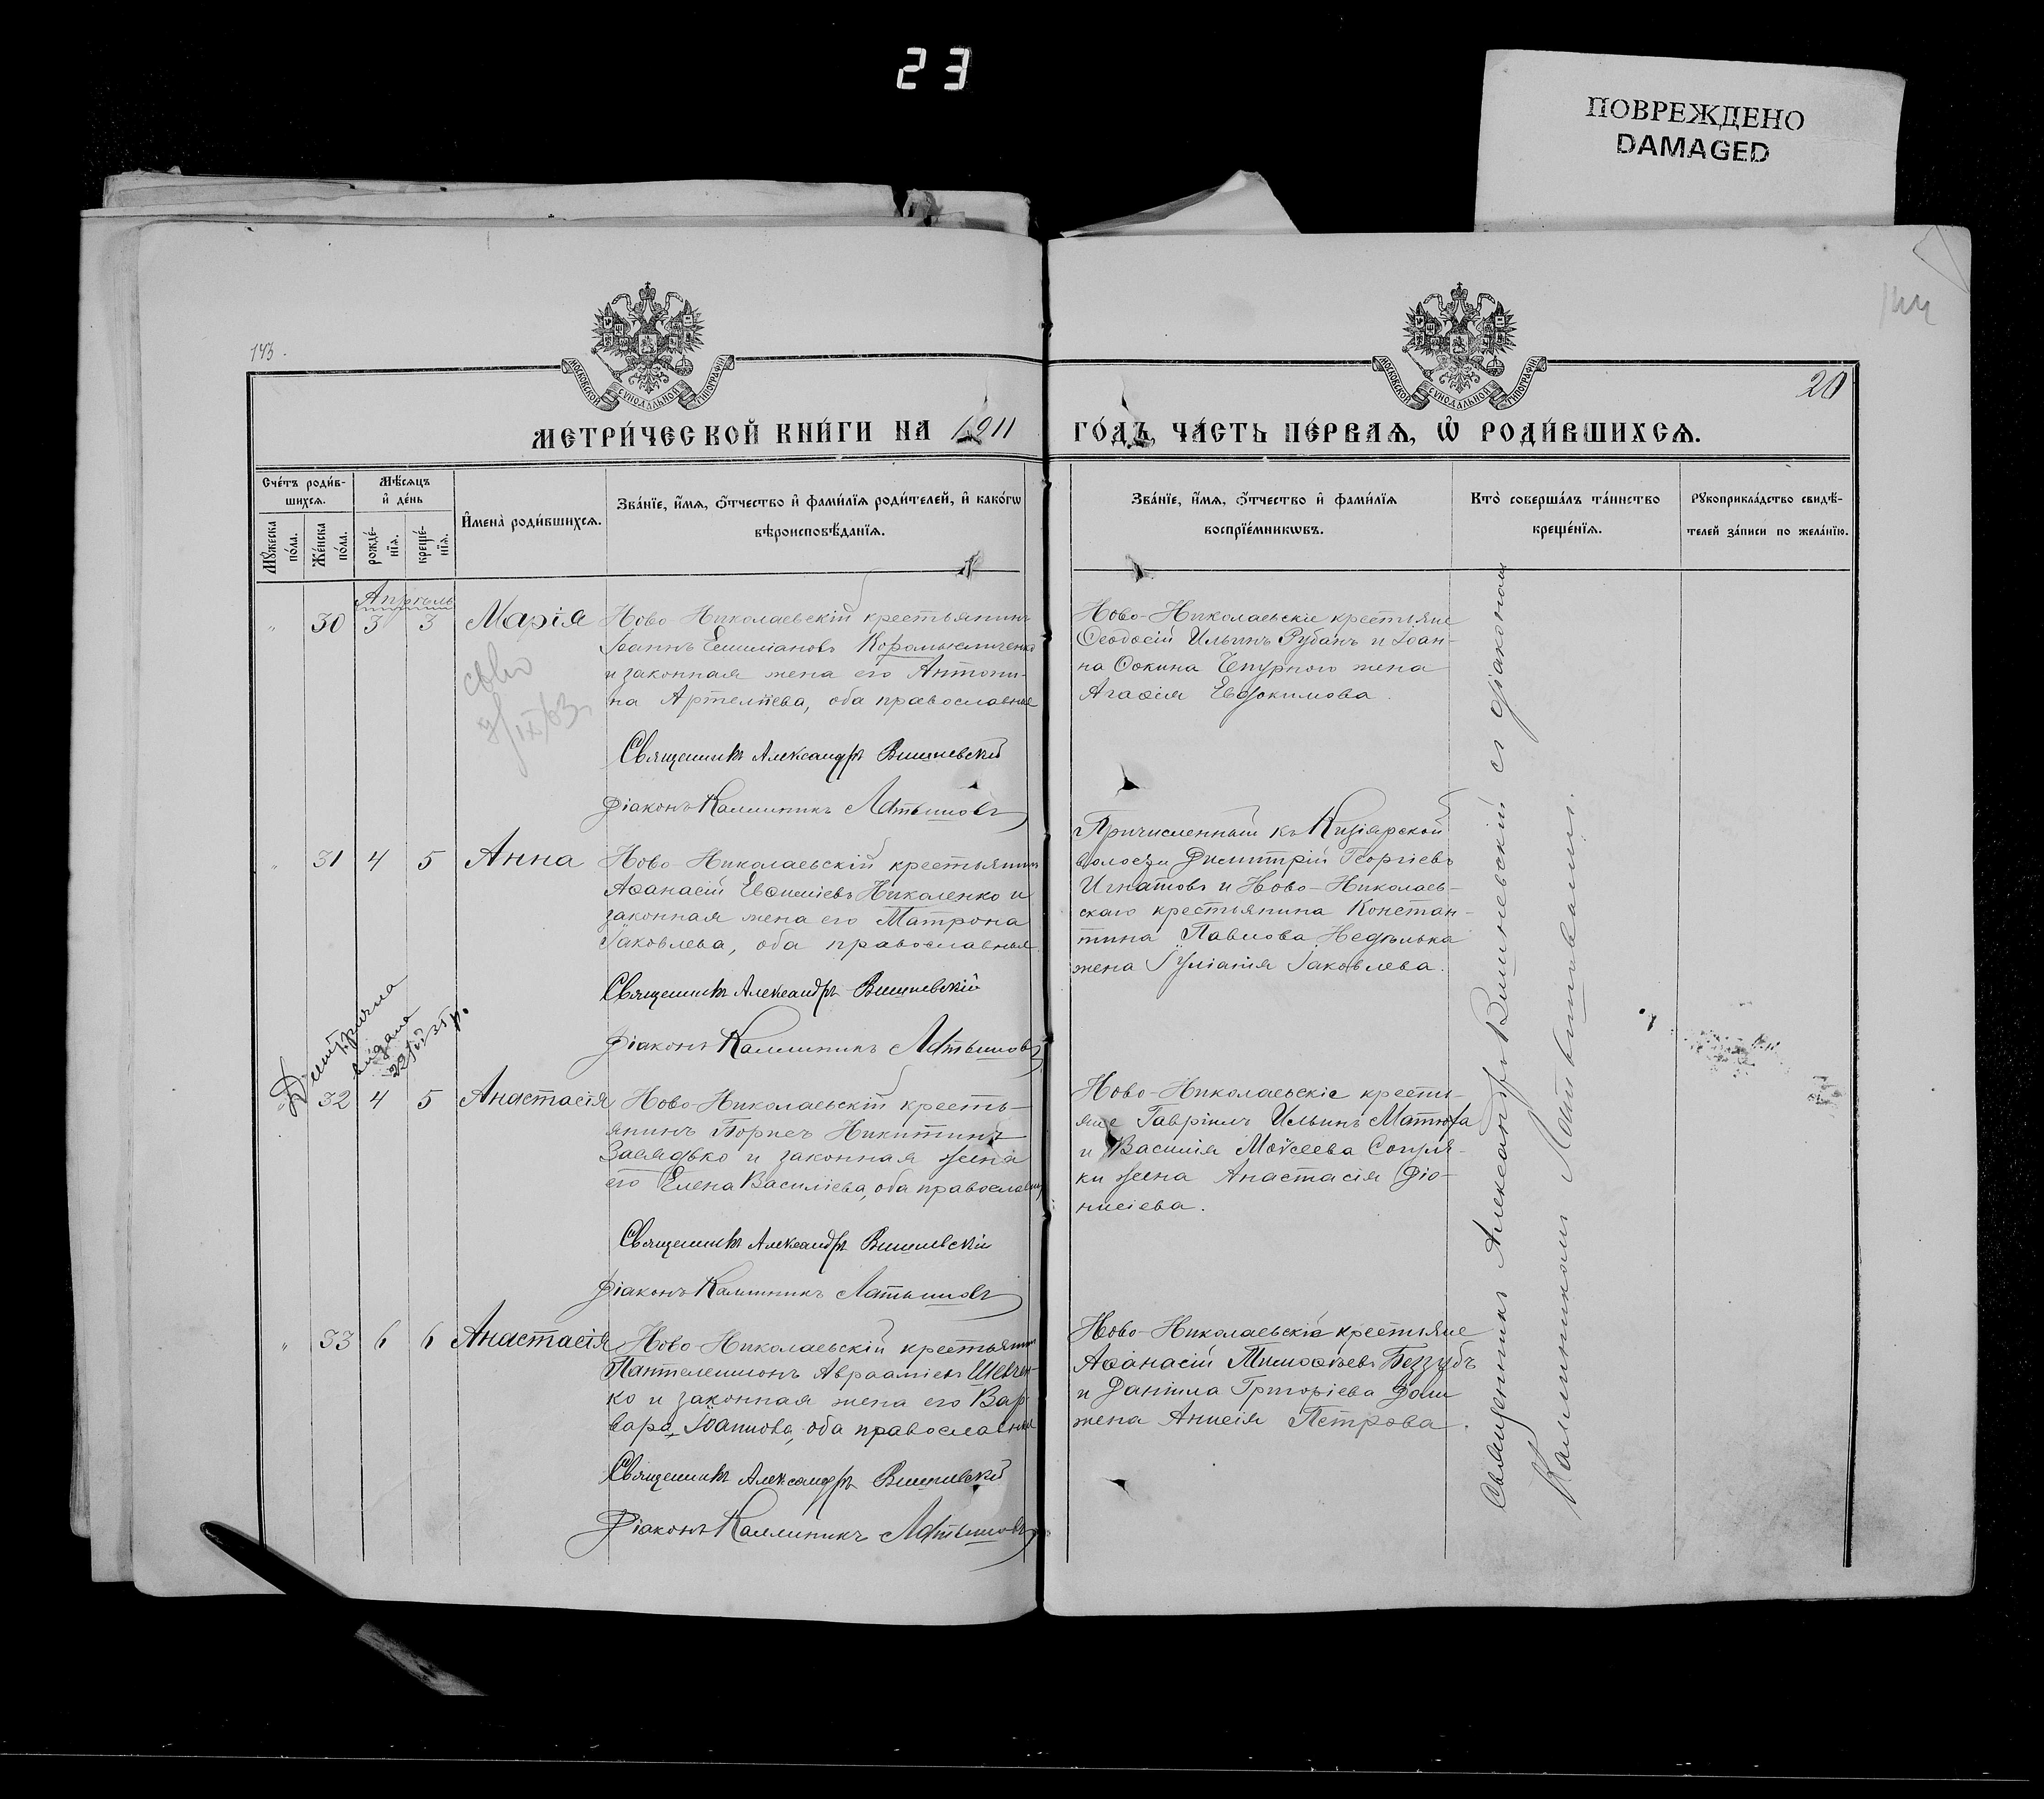 23
ПОВРЕЖДЕНО
DAMAGED
143.
144
20
МОСКОВСКОЙ СУНОДАЛЬНОЙ ТИПОГРАФІИ
МОСКОВСКОЙ СУНОДАЛЬНОЙ ТИПОГРАФІИ
МЕТРИ́ЧЕСКОЙ КНИ́ГИ НА 1911
ГО́ДЪ, ЧА́СТЬ ПЕ́РВАѦ, Ѡ҆ РОДИ́ВШИХСѦ.
Сче́тъ роди́в-
шихсѧ.
Мꙋ́жеска по́ла.
Же́нска по́ла.
Мѣ́сѧцъ
и҆ де́нь
рожде́-
нїѧ.
креще́-
нїѧ.
И҆мена̀ роди́вшихсѧ.
Зва́нїе, и҆́мѧ, ѻ҆́тчество и҆ фами́лїѧ роди́телей, и҆ како́гѡ
вѣроисповѣ́данїѧ.
Зва́нїе, и҆́мѧ, ѻ҆́тчество и҆ фами́лїѧ
воспрїе́мникѡвъ.
Кто̀ соверша́лъ та́инство
креще́нїѧ.
Рꙋкоприкла́дство свидѣ́-
телей за́писи по жела́нїю.
Апрѣль
30 3 3 Марія
Ново-Николаевскій крестьянинъ
Іоаннъ Емиліановъ
и законная жена его Антони-
на Артеміева, оба православные
Священникъ Александръ Вишневскій
Діаконъ Каллиникъ Латышовъ
Ново-Николаевскіе крестьяне
Ѳеодосій Ильинъ Рубанъ и Іоан-
на Ѳокина Чепурного жена
Агаѳія Евдокимова.
31 4 5 Анна
Ново-Николаевскій крестьянинъ
Аѳанасій Евѳиміевъ Николенко и
законная жена его Матрона
Іаковлева, оба православные
Священникъ Александръ Вишневскій
Діаконъ Каллиникъ Латышовъ
Причисленный къ Кизіярской
волости Димитрій Георгіевъ
Игнатовъ и Ново-Николаев-
скаго крестьянина Констан-
тина Павлова Недѣлька
жена Іуліанія Іаковлева.
32 4 5 Анастасія
Ново-Николаевскій кресть-
янинъ Борисъ Никитинъ
Завядько и законная жена
его Елена Василіева, оба православные
Священникъ Александръ Вишневскій
Діаконъ Каллиникъ Латышовъ
Ново-Николаевскіе кресть-
яне Гавріилъ Ильинъ Матюха
и Василія Моѵсеева Сопля-
ки жена Анастасія Діо-
нисіева.
33 6 6 Анастасія
Ново-Николаевскій крестьянинъ
Пантелеимонъ Авраамієвъ Шевчен-
ко и законная жена его Вар-
вара Іоаннова, оба православные
Священникъ Александръ Вишневскій
Діаконъ Каллиникъ Латышовъ
Ново-Николаевскіе крестьяне
Аѳанасій Тимоѳеевъ Беззубъ
и Даніила Григоріева
жена Анисія Петрова.
Священникъ Александръ Вишневскій съ діакономъ
Каллиникомъ Латышовымъ.